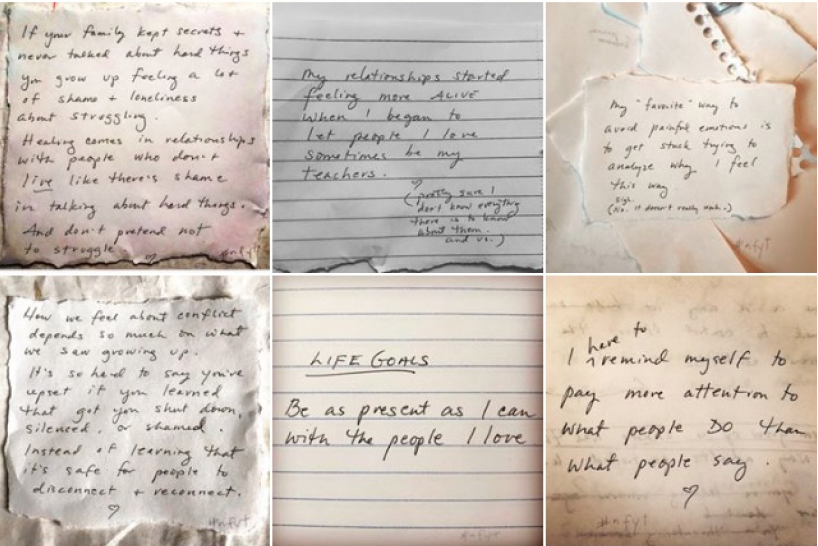 If your family kept secrets +
never talked about hard things
you grow up feeling a lot
of shame + loneliness
about struggling.
Healing comes in relationships
with people who don't
live like there's shame
in talking about hard things.
And don't pretend not
to struggle
#nfyt
My relationships started
feeling more ALIVE
when I began to
let people I love
sometimes be my
teachers.
(pretty sure I
don't know everything
there is to know
about them.
and us.)
My "favorite" way to
avoid painful emotions is
to get stuck trying to
analyze why I feel
this way.
sigh.
(No. it doesn't really work.)
#nfyt
How we feel about conflict
depends so much on what
we saw growing up.
It's so hard to say you're
upset if you learned
that got you shut down,
silenced, or shamed.
Instead of learning that
it's safe for people to
disconnect + reconnect.
#nfyt
LIFE GOALS
Be as present as I can
with the people I love
#nfyt
I have to remind myself to
pay more attention to
what people DO than
what people say.
#nfyt